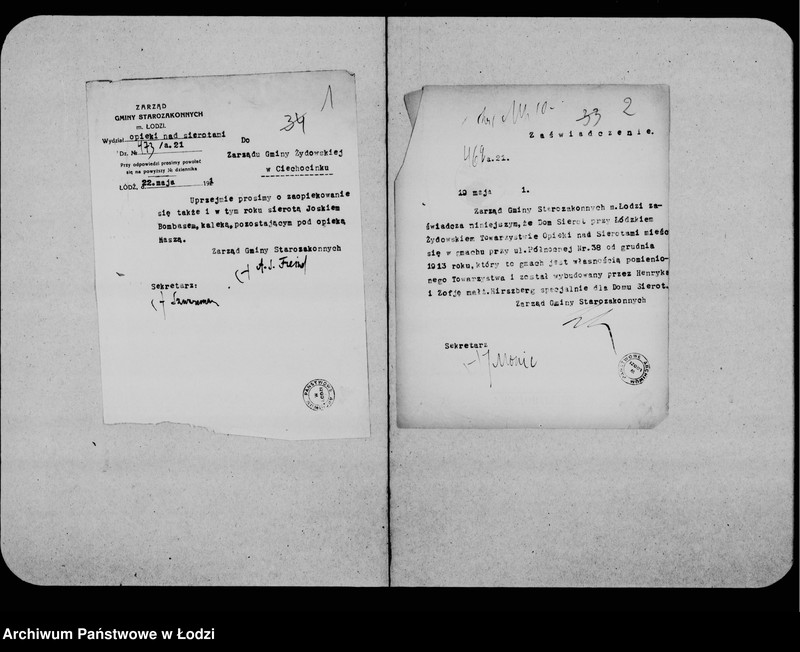 1
34
ZARZĄD
GMINY STAROZAKONNYCH
m. ŁODZI.
Wydział opieki nad sierotami
Dz. № 473/a.21
Przy odpowiedzi prosimy powołać
się na powyższy № dziennika
ŁÓDŹ, 22.maja 192
Do
Zarządu Gminy Żydowskiej
w Ciechocinku
Uprzejmie prosimy o zaopiekowanie
się także i w tym roku sierotą Joskiem
Bombasem, kaleką, pozostającym pod opieką
naszą.
Zarząd Gminy Starozakonnych
(-)
Sekretarz:
(-)
33 2
Zaświadczenie.
469/a.21.
19 maja 1.
Zarząd Gminy Starozakonnych m.Łodzi za-
świadcza niniejszym, że Dom Sierot przy Łódzkiem
Żydowskiem Towarzystwie Opieki nad Sierotami mieści
się w gmachu przy ul.Północnej Nr.38 od grudnia
1913 roku, który to gmach jest własnością pomienio-
nego Towarzystwa i został wybudowany przez Henryka
i Zofję małż.Hirszberg specjalnie dla Domu Sierot.
Zarząd Gminy Starozakonnych
Sekretarz
(-)
Archiwum Państwowe w Łodzi